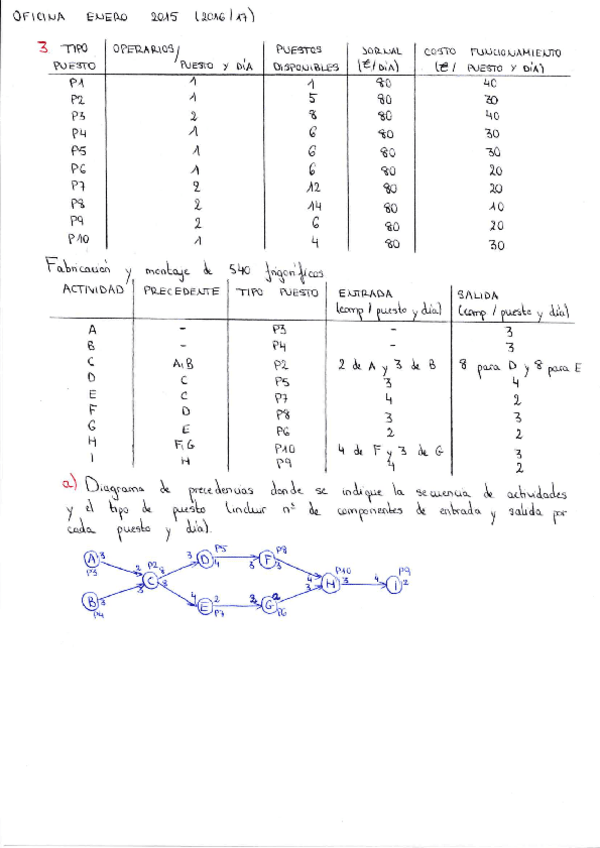 OFICINA ENERO 2015 (2016/17)
3 TIPO PUESTO | OPERARIOS/PUESTO Y DÍA | PUESTOS DISPONIBLES | JORNAL (€/DÍA) | COSTO FUNCIONAMIENTO (€/PUESTO Y DÍA)
P1 1 1 80 40
P2 1 5 80 30
P3 2 8 80 40
P4 1 6 80 30
P5 1 6 80 30
P6 1 6 80 20
P7 2 12 80 20
P8 2 14 80 10
P9 2 6 80 20
P10 1 4 80 30
Fabricación y montaje de 540 frigoríficos
ACTIVIDAD | PRECEDENTE | TIPO PUESTO | ENTRADA (comp / puesto y día) | SALIDA (comp / puesto y día)
A - P3 - 3
B - P4 - 3
C A,B P2 2 de A y 3 de B 8 para D y 8 para E
D C P5 3 4
E C P7 4 2
F D P8 3 3
G E P6 2 2
H F,G P10 4 de F y 3 de G 3
I H P9 4 2
a) Diagrama de precedencias donde se indique la secuencia de actividades
y el tipo de puesto (incluir nº de componentes de entrada y salida por
cada puesto y día).
A 3 P3 2 P2 8 C 3 8 3 D P5 4 3 F P8 3 4 H P10 3 4 I P9 2
B 3 P4 4 E 2 P7 2 G 2 P6 3